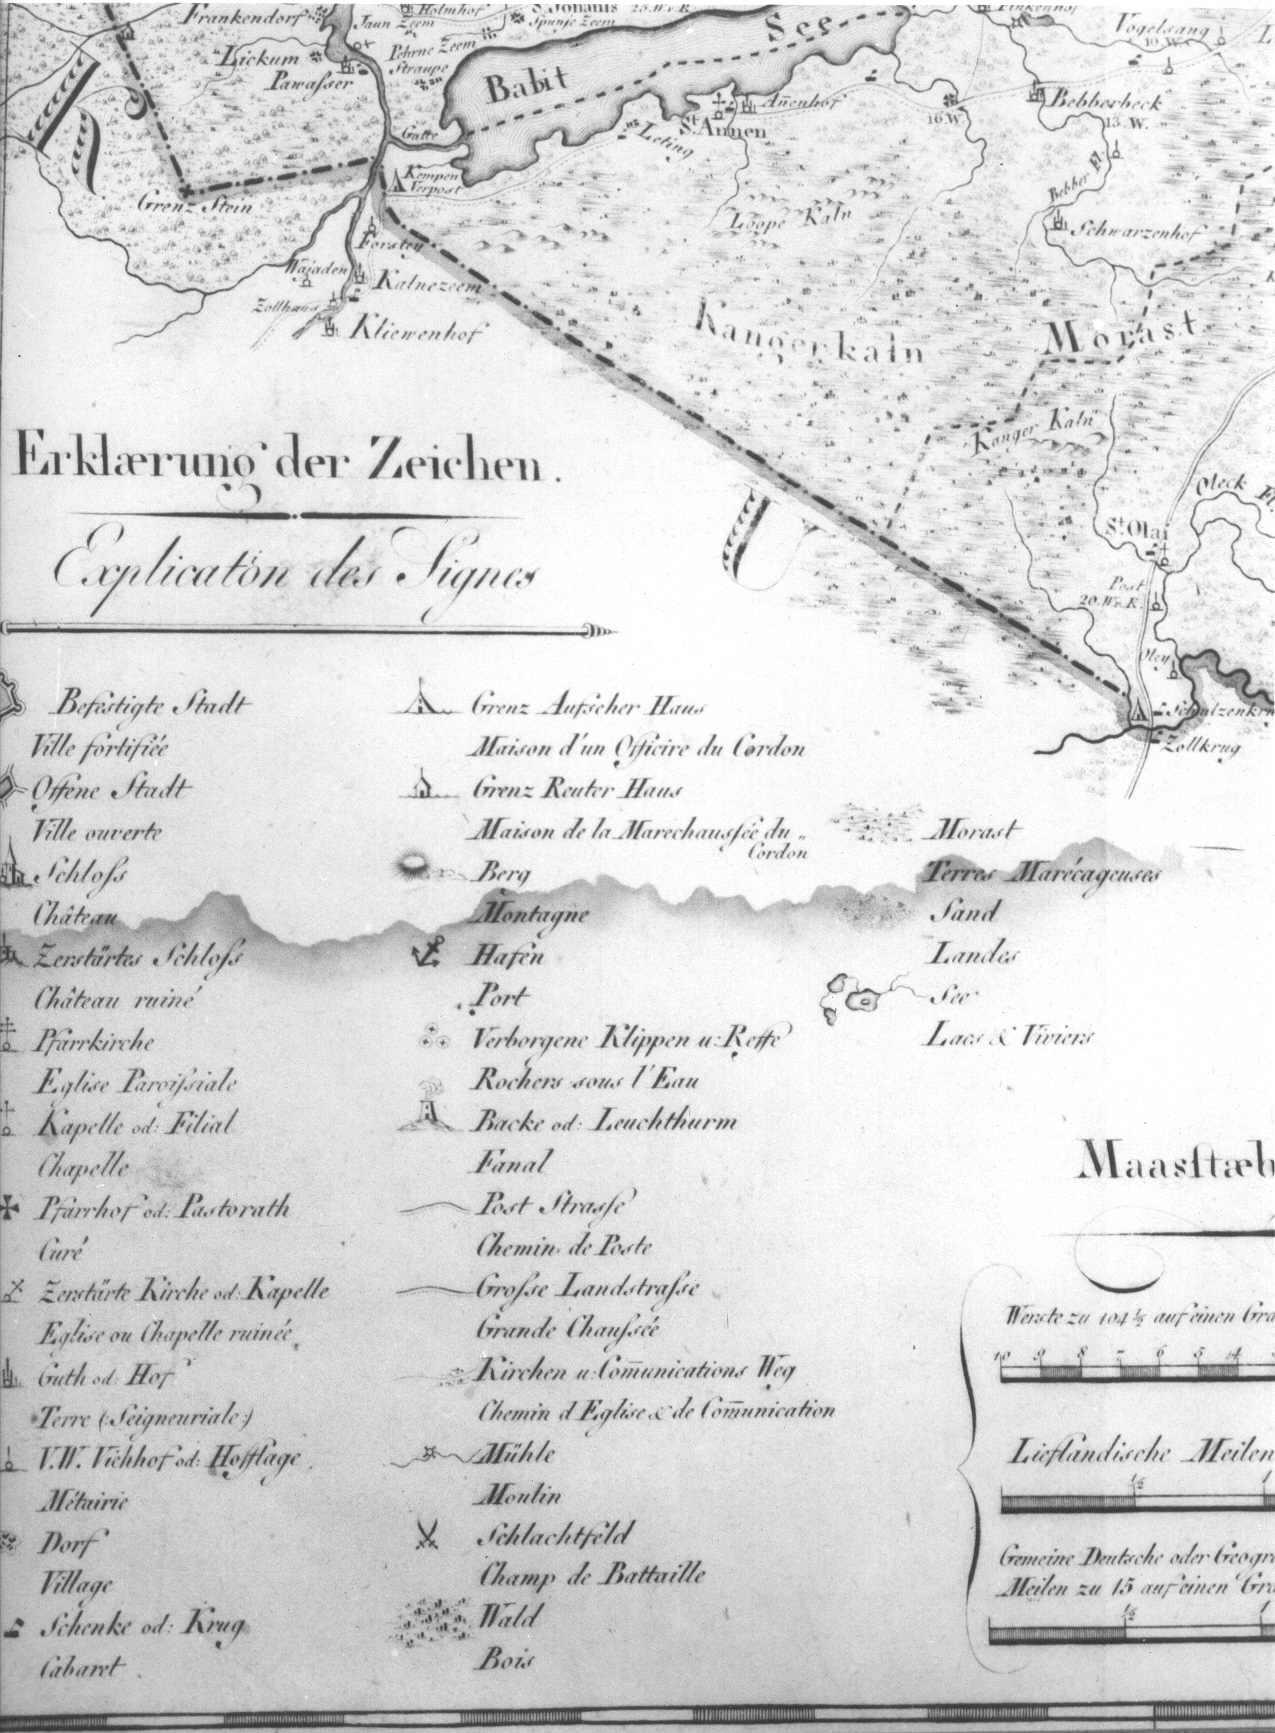 Frankendorf
Holmhof
S. Johanis
20. W. v R.
Jaun Zeem
Spunje Zeem
Pinkenhof
Vogelsang
10. W.
Lickum
Pawaſser
Pehrne Zeem
Straupe
Babit
See
Gatte
Leting
St. Annen
Añenhof
16. W.
Bebberbeck
13. W.
Bebber Fl.
Schwarzenhof
Grenz Stein
Kempen
Verpost
Forstey
Waiaden
Kalnezeem
Zollhaus
Kliewenhof
Loope Kaln
Kangerkaln
Morast
Kanger Kaln
Oleck Fl.
St. Olai
Post
20. W. v. R.
Oley
Schulzenkru
Zollkrug
K
U
Erklærung der Zeichen.
Explicaton des Signes
Befestigte Stadt
Ville fortifiée
Offene Stadt
Ville ouverte
Schloſs
Château
Zerstärtes Schloſs
Château ruiné
Pfarrkirche
Eglise Paroiſsiale
Kapelle od: Filial
Chapelle
Pfarrhof od: Pastorath
Curé
Zerstärte Kirche od: Kapelle
Eglise ou Chapelle ruinée
Guth od: Hof
Terre (: Seigneuriale :)
V.W. Viehhof od: Hofflage
Métairie
Dorf
Village
Schenke od: Krug
Cabaret
Grenz Aufseher Haus
Maison d'un Officire du Cordon
Grenz Reuter Haus
Maison de la Marechauſsée du „
Cordon
Berg
Montagne
Hafen
Port
Verborgene Klippen u: Reffe
Rochers sous l'Eau
Backe od: Leuchthurm
Fanal
Post Straſse
Chemin de Poste
Groſse Landstraſse
Grande Chauſsée
Kirchen u: Com̄unications Weg
Chemin d Eglise & de Com̄unication
Mühle
Moulin
Schlachtfeld
Champ de Battaille
Wald
Bois
Morast
Terres Marécageuses
Sand
Landes
See
Lacs & Viviers
Maasſtæb
Werste zu 104 ⅓ auf einen Gra
10 9 8 7 6 5 4
Lieflandische Meilen
½ 1
Gemeine Deutsche oder Geogra
Meilen zu 15 auf einen Gra
½ 1